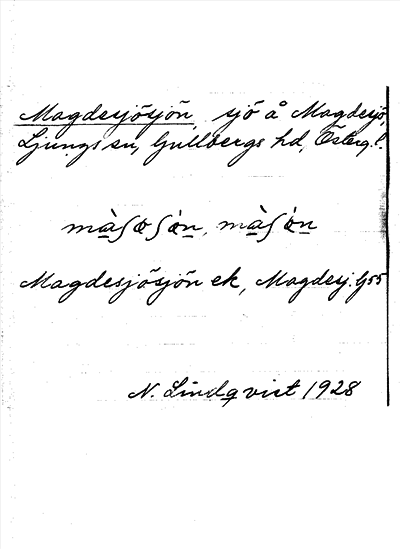 Magdesjösjön, sjö å Magdesjö,
Ljungs sn, Gullbergs hd, Österg. l.
màʃɵʃön, màʃön
Magdesjösjön ek, Magdesj. G55
N. Lindqvist 1928